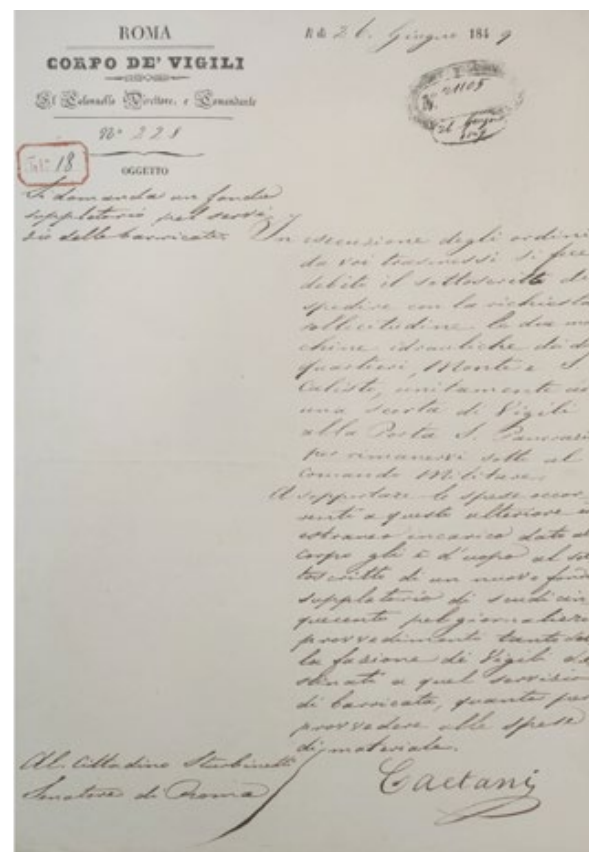 ROMA
CORPO DE' VIGILI
Il Colonnello Direttore, e Comandante
N° 228
N° 18
OGGETTO
Si domanda un fondo
suppletorio pel servi-
zio delle barricate.
li di 26 Giugno 1849
N. 21105
26 Giugno
In escuzione degli ordini
da voi trasmessi si fece
debito il sottoscritto di
spedire con la richiesta
sollecitudine le due ma
chine idrauliche dei d
quartieri, Monti e S.
Calisto, unitamente
una scorta di Vigili
alla Porta S. Pancrazi
per rimanervi sotto al
Comando Militare.
A sopportare le spese occor
renti a questo ulteriore e
estraneo incarico dato al
Corpo gli è d'uopo al sot
toscritto di un nuovo fond
suppletorio di scudi cin
quecento pel giornaliero
provvedimento tanto del
la fazione di Vigili de
stinati a quel servizio
di barricate, quanto per
provvedere alle spese
di materiale.
Al Cittadino Sturbinetti
Senatore di Roma
Caetani